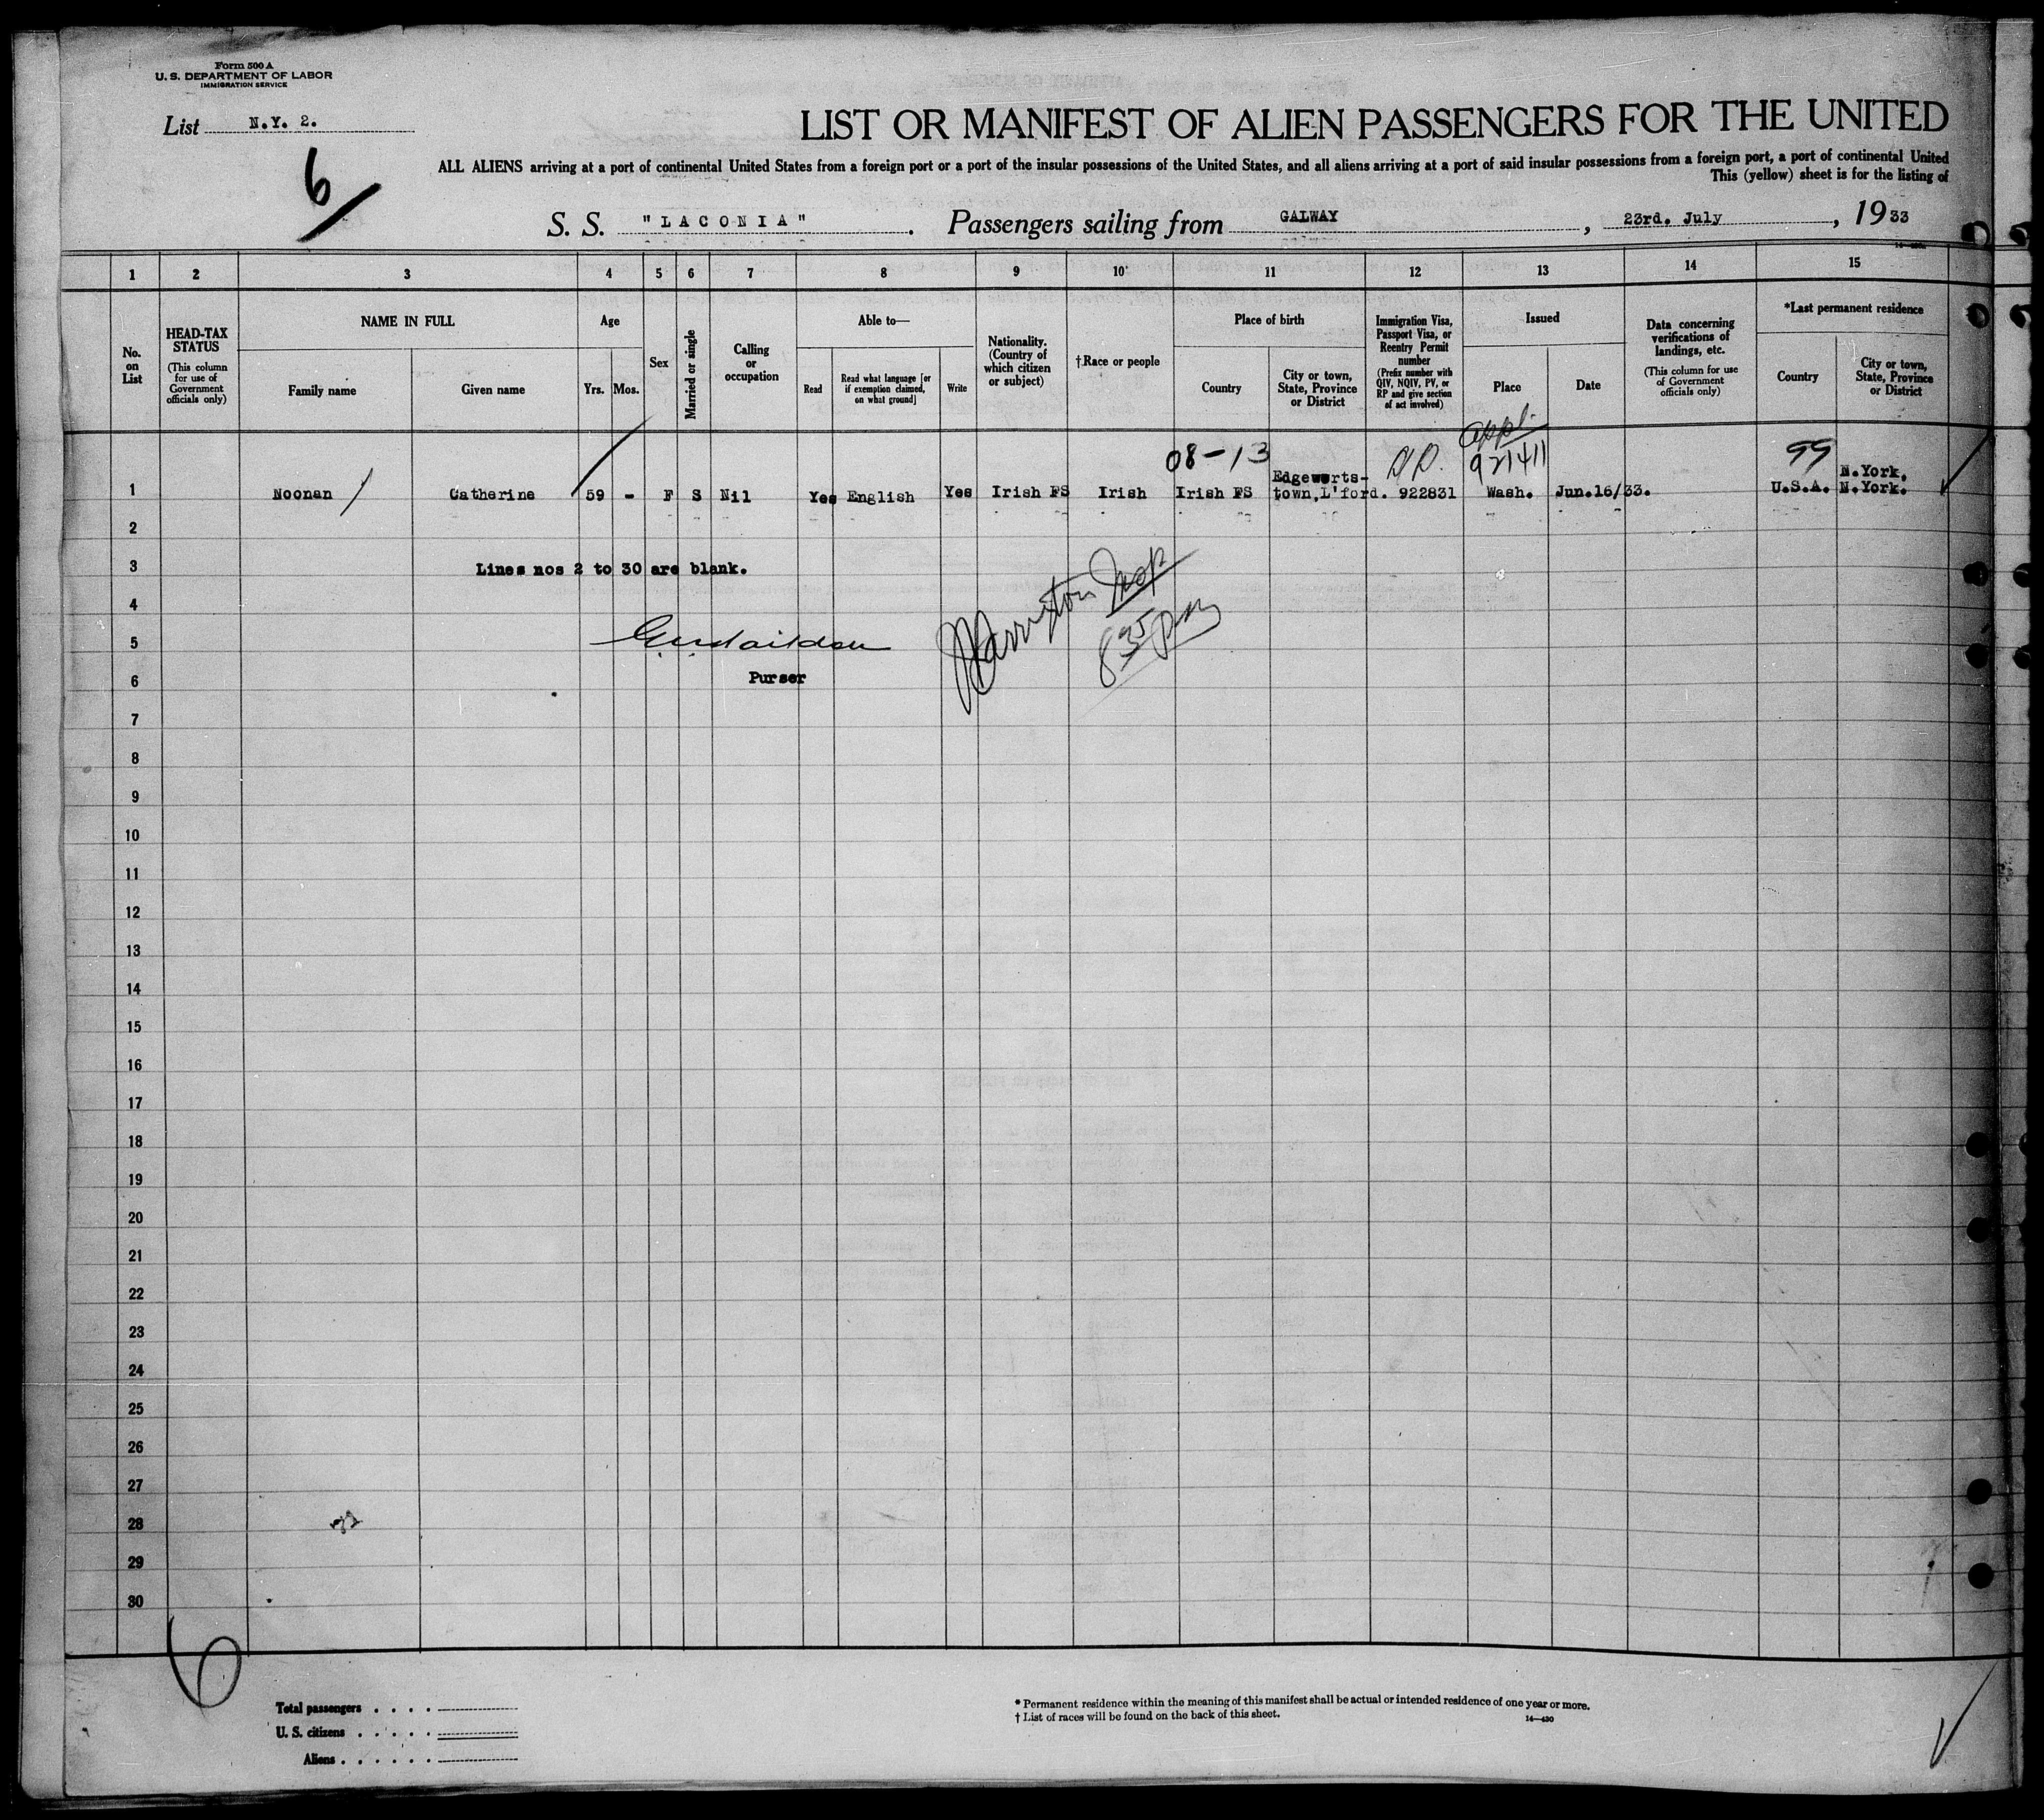 Form 500 A
U. S. DEPARTMENT OF LABOR
IMMIGRATION SERVICE
List N.Y. 2.
6
LIST OR MANIFEST OF ALIEN PASSENGERS FOR THE UNITED
ALL ALIENS arriving at a port of continental United States from a foreign port or a port of the insular possessions of the United States, and all aliens arriving at a port of said insular possessions from a foreign port, a port of continental United
This (yellow) sheet is for the listing of
S. S. "LACONIA". Passengers sailing from GALWAY, 23rd. July, 1933
1 2 3 4 5 6 7 8 9 10 11 12 13 14 15
No. on List
HEAD-TAX STATUS
(This column for use of Government officials only)
NAME IN FULL
Family name
Given name
Age
Yrs. Mos.
Sex
Married or single
Calling or occupation
Able to—
Read
Read what language [or if exemption claimed, on what ground]
Write
Nationality. (Country of which citizen or subject)
†Race or people
Place of birth
Country
City or town, State, Province or District
Immigration Visa, Passport Visa, or Reentry Permit number
(Prefix number with QIV, NQIV, PV, or RP and give section of act involved)
Issued
Place
Date
Data concerning verifications of landings, etc.
(This column for use of Government officials only)
*Last permanent residence
Country
City or town, State, Province or District
Appl.
08-13 921411 99
Edgeworts- N.York.
1 Noonan Catherine 59 - F S Nil Yes English Yes Irish FS Irish Irish FS town,L'ford. 922831 Wash. Jun.16/33. U.S.A. N.York.
2
3 Lines nos 2 to 30 are blank.
4
5
Harrington Insp
8 35 PM
6 Purser
7
8
9
10
11
12
13
14
15
16
17
18
19
20
21
22
23
24
25
26
27
28
29
30
6
Total passengers
U. S. citizens
Aliens
* Permanent residence within the meaning of this manifest shall be actual or intended residence of one year or more.
† List of races will be found on the back of this sheet.
14—430